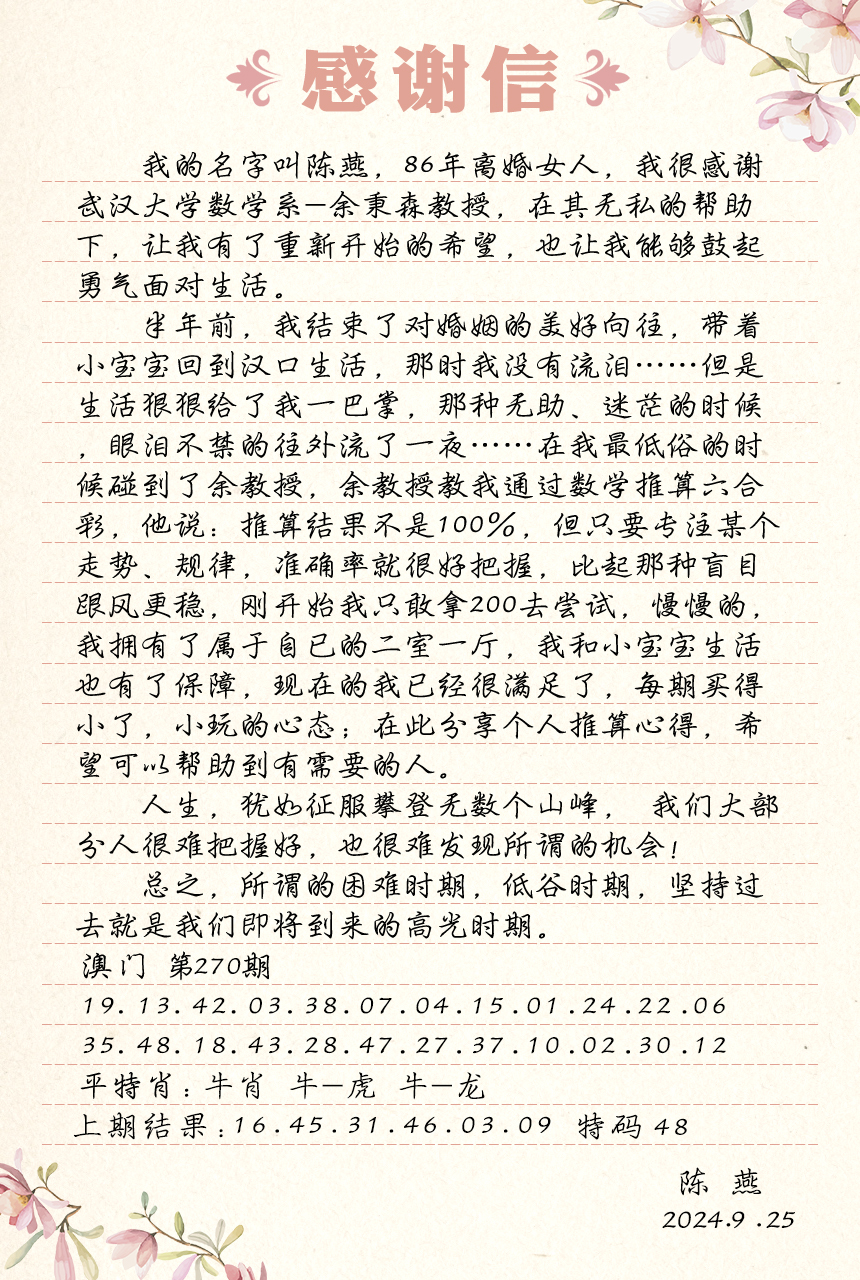 感谢信
我的名字叫陈燕，86年离婚女人，我很感谢
武汉大学数学系—余秉森教授，在其无私的帮助
下，让我有了重新开始的希望，也让我能够鼓起
勇气面对生活。
半年前，我结束了对婚姻的美好向往，带着
小宝宝回到汉口生活，那时我没有流泪……但是
生活狠狠给了我一巴掌，那种无助、迷茫的时候
，眼泪不禁的往外流了一夜……在我最低俗的时
候碰到了余教授，余教授教我通过数学推算六合
彩，他说：推算结果不是100%，但只要专注某个
走势、规律，准确率就很好把握，比起那种盲目
跟风更稳，刚开始我只敢拿200去尝试，慢慢的，
我拥有了属于自已的二室一厅，我和小宝宝生活
也有了保障，现在的我已经很满足了，每期买得
小了，小玩的心态；在此分享个人推算心得，希
望可以帮助到有需要的人。
人生，犹如征服攀登无数个山峰， 我们大部
分人很难把握好，也很难发现所谓的机会！
总之，所谓的困难时期，低谷时期，坚持过
去就是我们即将到来的高光时期。
澳门 第270期
19.13.42.03.38.07.04.15.01.24.22.06
35.48.18.43.28.47.27.37.10.02.30.12
平特肖：牛肖 牛—虎 牛—龙
上期结果：16.45.31.46.03.09 特码 48
陈 燕
2024.9.25